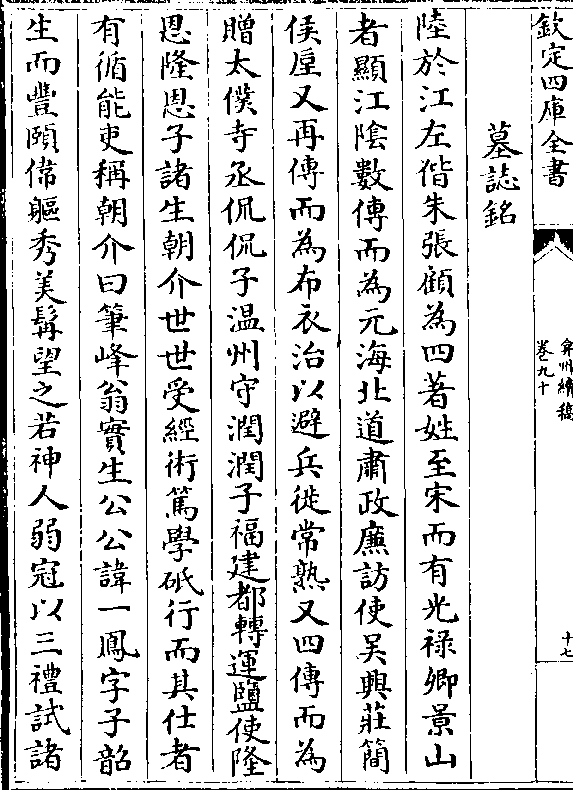 欽定四庫全書
弇州續稿
卷九十
十七
墓誌銘
陸於江左偕朱張顧為四著姓至宋而有光禄卿景山
者顯江陰數傳而為元海北道肅政廉訪使吴興莊簡
侯垕又再傳而為布衣治以避兵徙常熟又四傳而為
贈太僕寺丞侃侃子温州守潤潤子福建都轉運鹽使隆
恩隆恩子諸生朝介世世受經術篤學砥行而其仕者
有循能吏稱朝介曰筆峰翁實生公公諱一鳳字子韶
生而豐頤偉軀秀美髯望之若神人弱冠以三禮試諸